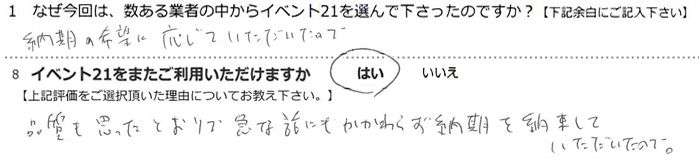 1 なぜ今回は、数ある業者の中からイベント21を選んで下さったのですか？【下記余白にご記入下さい】
納期の希望に応じていただいたので
8 イベント21をまたご利用いただけますか はい いいえ
【上記評価をご選択頂いた理由についてお教え下さい。】
品質も思ったとおりで急な話にもかかわらず納期を納束して
いただいたので。